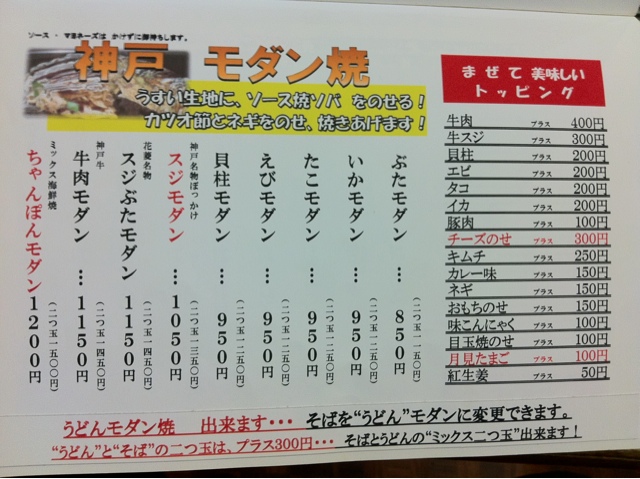 ソース・マヨネーズは かけずに御持ちします。
神戸 モダン焼
うすい生地に、ソース焼ソバ をのせる！
カツオ節とネギをのせ、焼きあげます！
ぶたモダン … 850円
（二つ玉一一五〇円）
いかモダン … 950円
（二つ玉一二五〇円）
たこモダン … 950円
（二つ玉一二五〇円）
えびモダン … 950円
（二つ玉一二五〇円）
貝柱モダン … 950円
（二つ玉一二五〇円）
神戸名物ぼっかけ
スジモダン … 1050円
（二つ玉一三五〇円）
花菱名物
スジぶたモダン 1150円
（二つ玉一四五〇円）
神戸牛
牛肉モダン … 1150円
（二つ玉一四五〇円）
ミックス海鮮焼
ちゃんぽんモダン 1200円
（二つ玉一五〇〇円）
まぜて 美味しい
トッピング
牛肉 プラス 400円
牛スジ プラス 300円
貝柱 プラス 200円
エビ プラス 200円
タコ プラス 200円
イカ プラス 200円
豚肉 プラス 100円
チーズのせ プラス 300円
キムチ プラス 250円
カレー味 プラス 150円
ネギ プラス 150円
おもちのせ プラス 150円
味こんにゃく プラス 100円
目玉焼のせ プラス 100円
月見たまご プラス 100円
紅生姜 プラス 50円
うどんモダン焼 出来ます・・・ そばを“うどん”モダンに変更できます。
“うどん”と“そば”の二つ玉は、プラス300円・・・ そばとうどんの“ミックス二つ玉”出来ます！